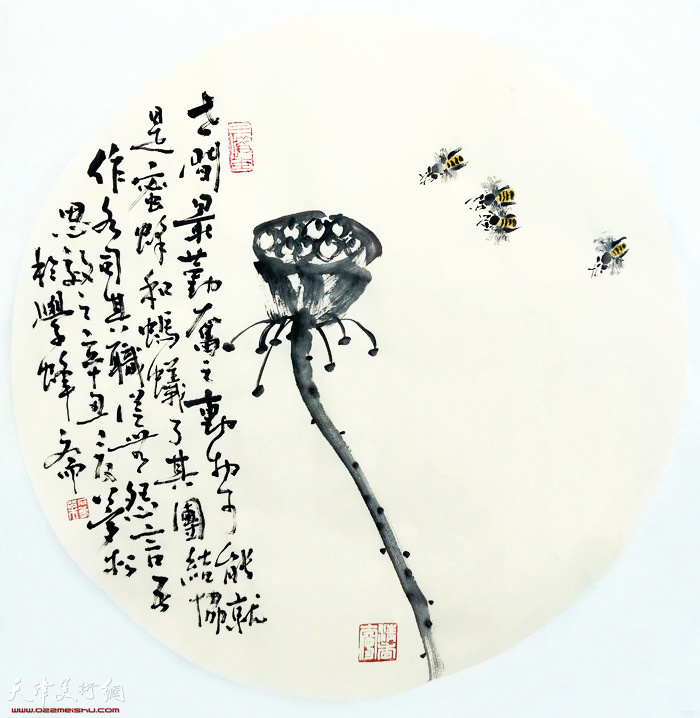 世間最勤奮之動物可能就
是蜜蜂和螞蟻了其團結協
作各司其職從無怨言吾
思敬之辛丑
於學蜂齋
天津美術網
www.022meishu.com